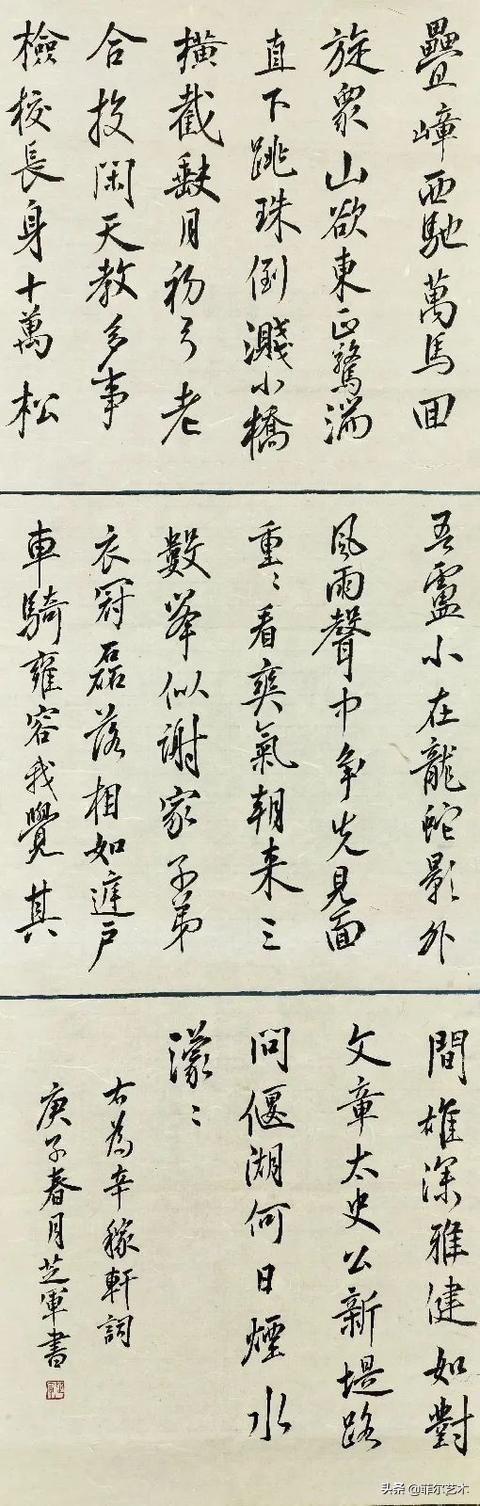 疊嶂西馳萬馬回
旋眾山欲東正驚湍
直下跳珠倒濺小橋
橫截缺月初弓老
合投閑天教多事
檢校長身十萬松
吾廬小在龍蛇影外
風雨聲中爭先見面
重〻看爽氣朝來三
數峯似謝家子弟
衣冠磊落相如庭戶
車騎雍容我覺其
間雄深雅健如對
文章太史公新堤路
問偃湖何日煙水
濛〻
右為辛稼軒詞
庚子春月芝軍書
头条 @菲尔艺术